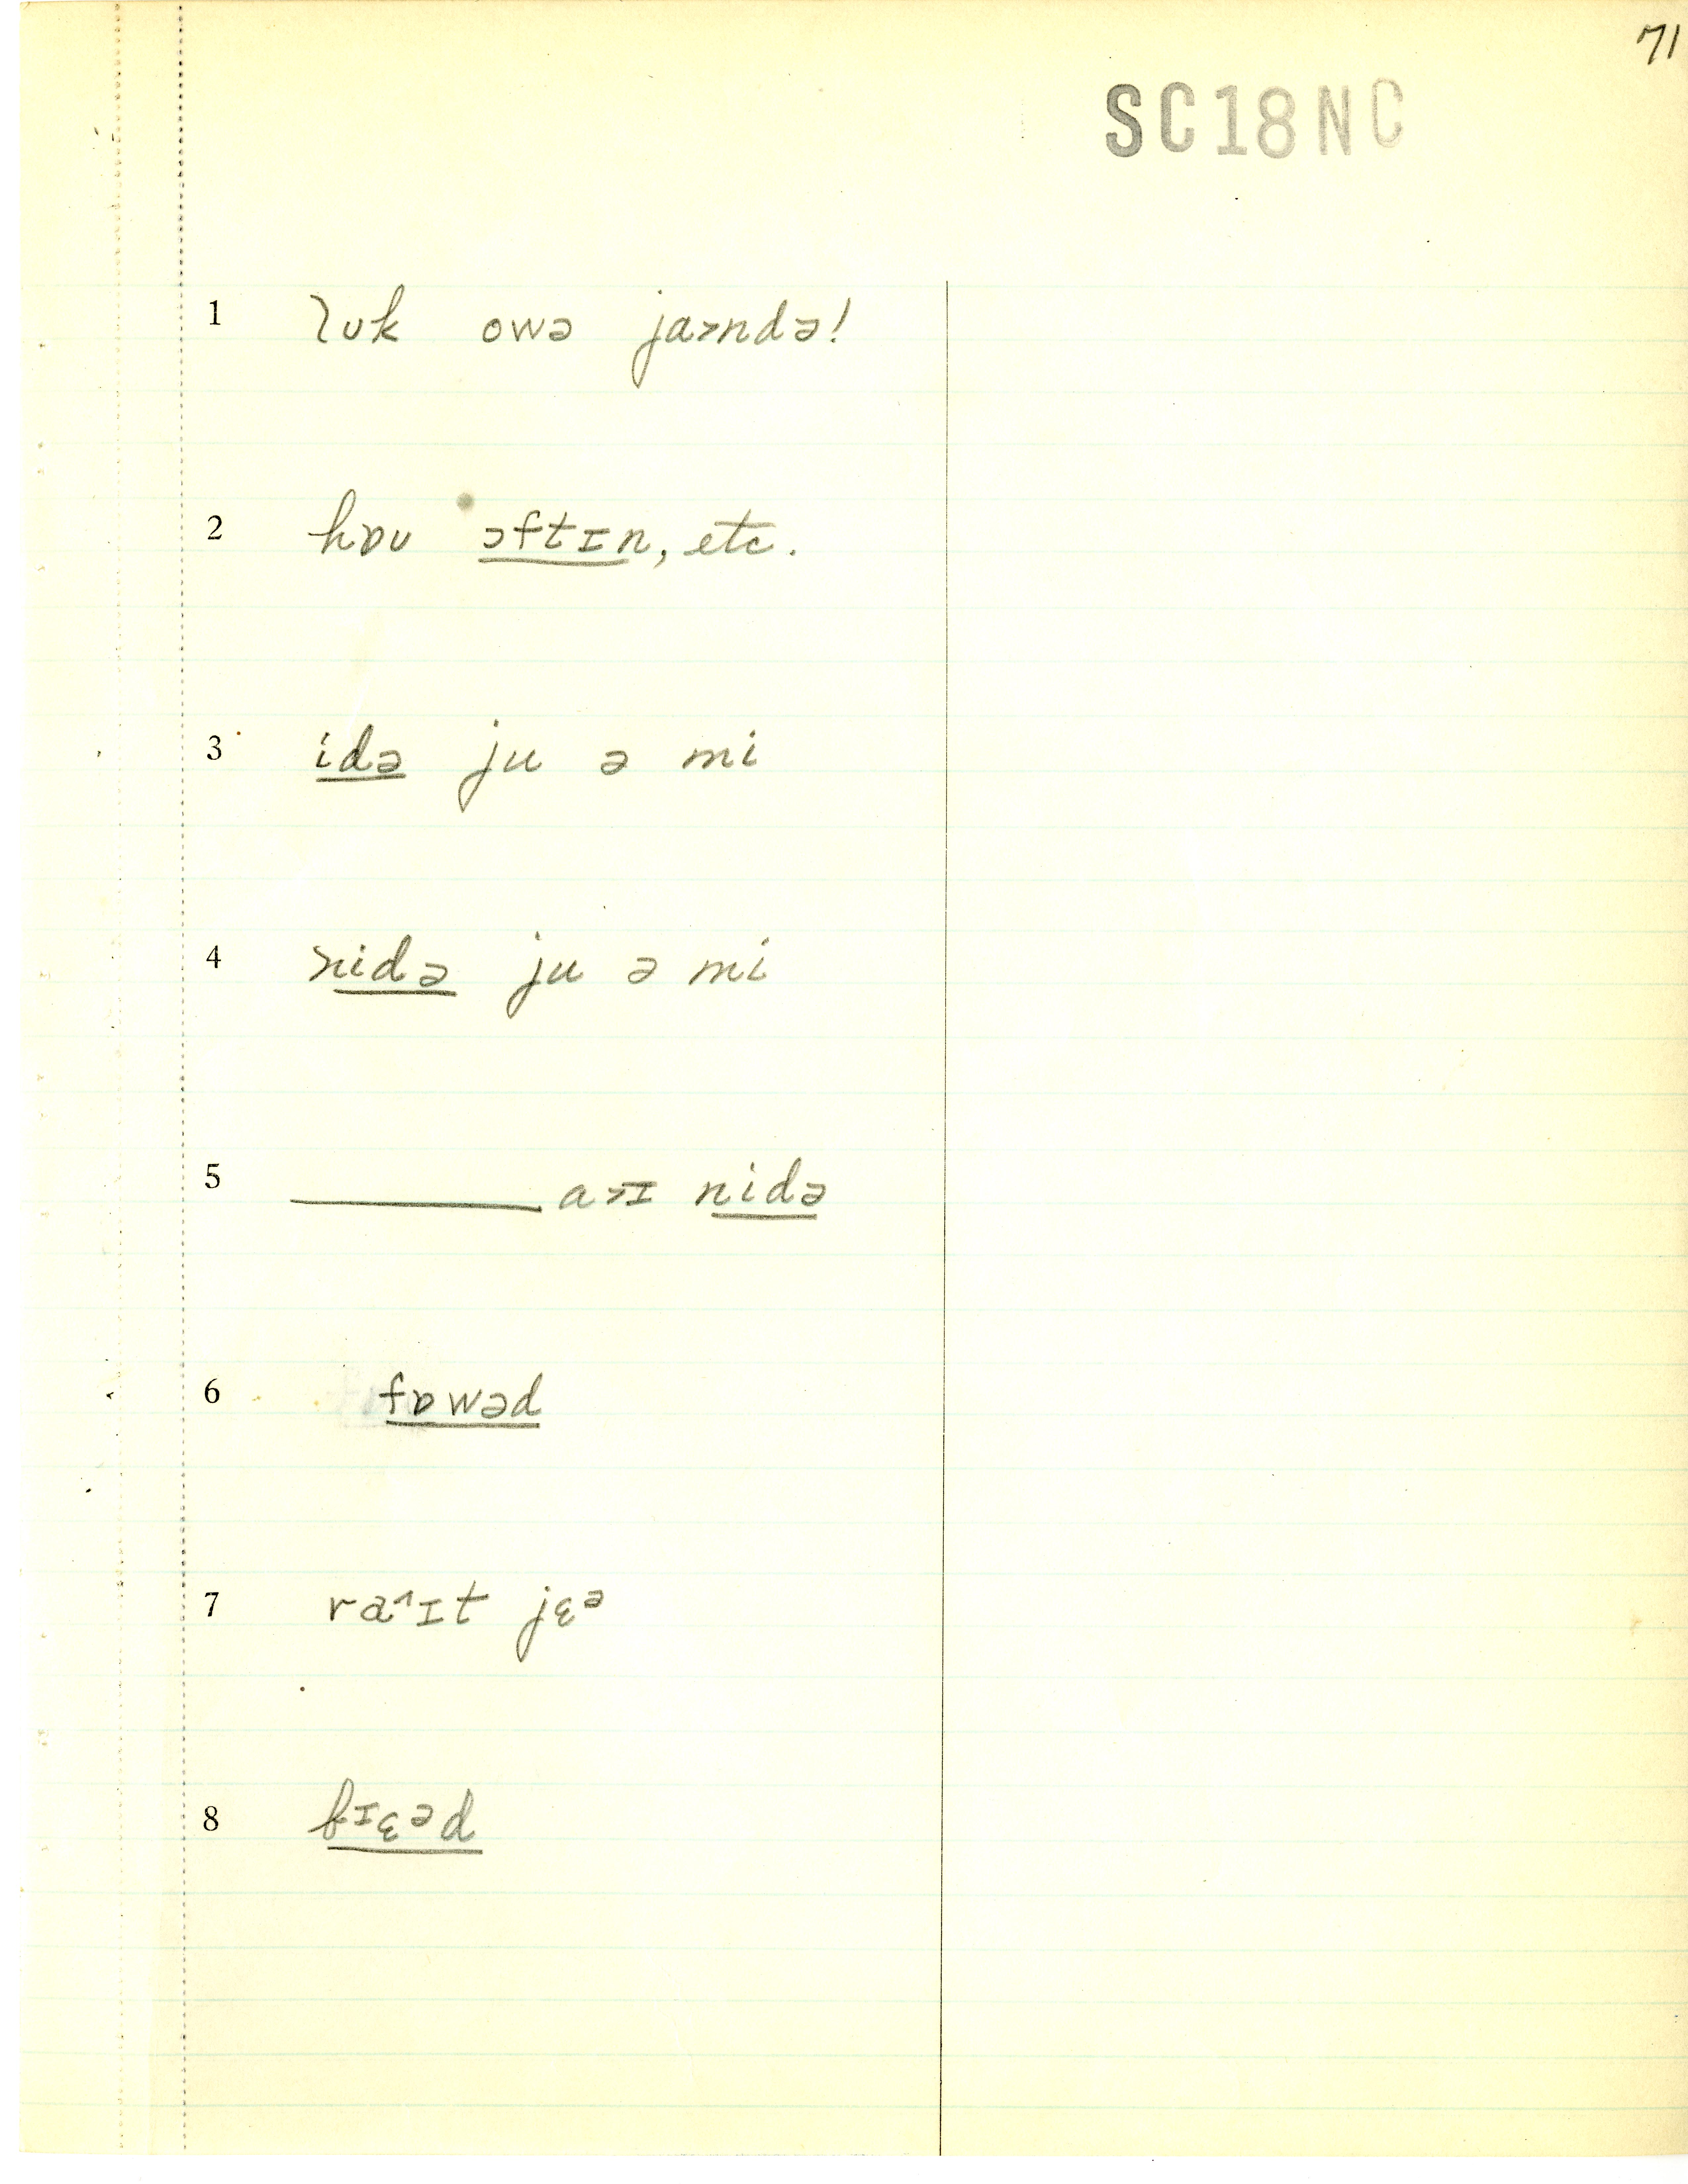 71
SC18NC
1 lʊk owə ja>ndə!
2 hɒʊ ɔftɪn, etc.
3 idə ju ə mi
4 nidə ju ə mi
5 ________ a>ɪ nidə
6 fɒwəd
7 ra^ɪt jɛᵊ
8 fᶦɛᵊd